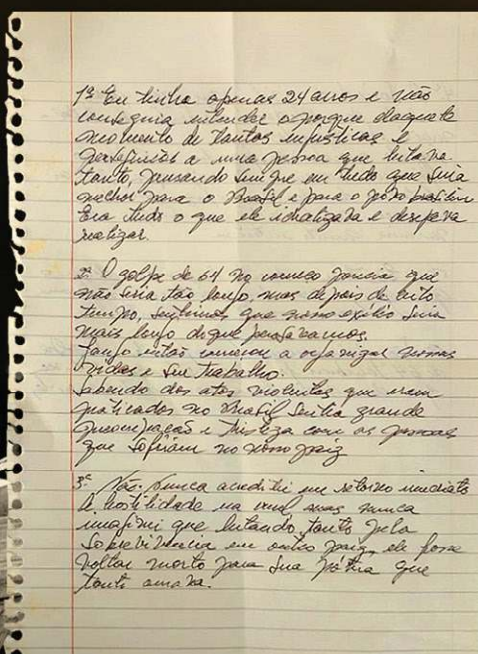 1ª Eu tinha apenas 24 anos e não
conseguia entender o porque daquele
momento de tantas injustiças e
a uma pessoa que lutava
tanto, pensando sempre em tudo que seria
melhor para o Brasil e para o povo brasileiro
Era tudo o que ele idealizava e desejava
realizar.
2ª O golpe de 64 no começo parecia que
não seria tão longo, mas depois de certo
tempo, sentimos que nosso exílio seria
mais longo do que pensavamos.
Jango então começou a organizar nossas
vidas e seu trabalho.
Sabendo dos atos violentos que eram
praticados no Brasil sentia grande
preocupação e tristeza com as pessoas
que sofriam no nosso paiz
3ª Não. Nunca acreditei em retorno imediato
A hostilidade era mas nunca
imaginei que lutando tanto pela
Sobrevivência em outro paiz, ele fosse
voltar morto para sua pátria que
tanto amava.